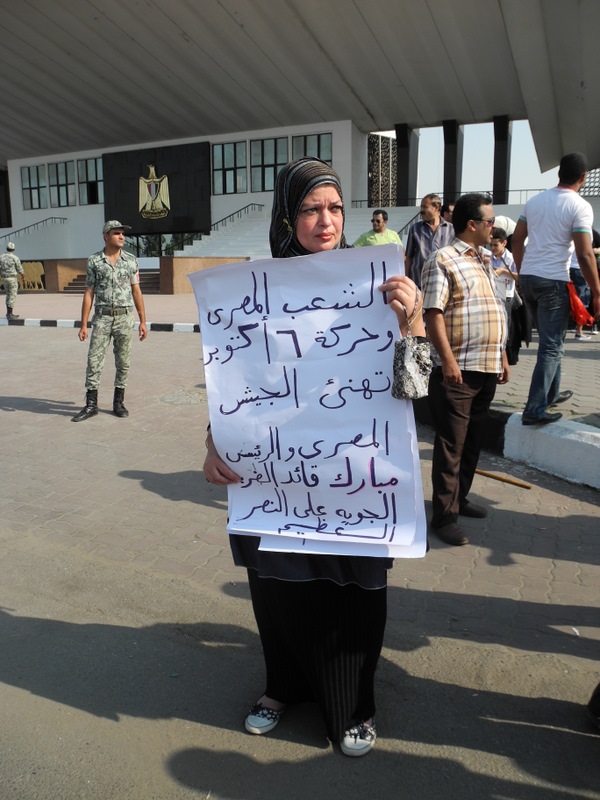 الشعب المصرى
وحركة ٦ أكتوبر
تهنئ الجيش
المصرى والرئيس
مبارك قائد الضربه
الجويه على النصر
العظيم